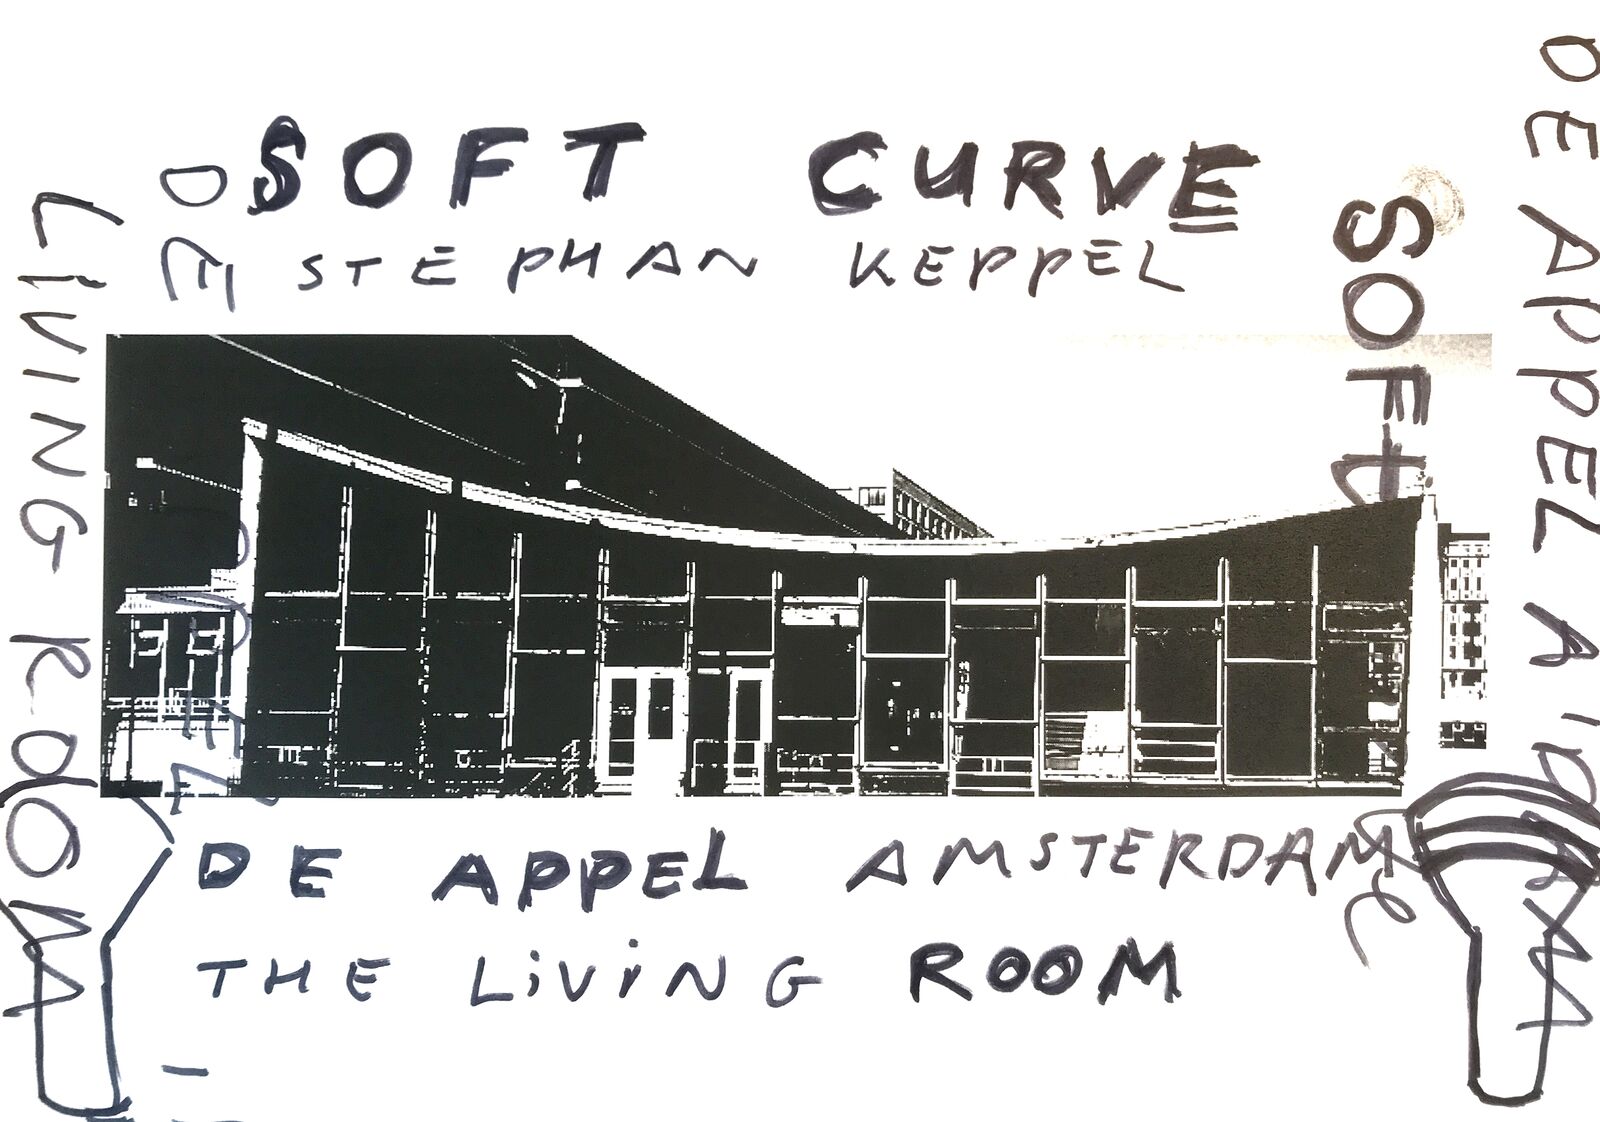 SOFT CURVE
STEPHAN KEPPEL
DE APPEL AMSTERDAM
THE LiViNG ROOM
LiVING ROOM
DE
SOFt
DE APPEL A'DAM